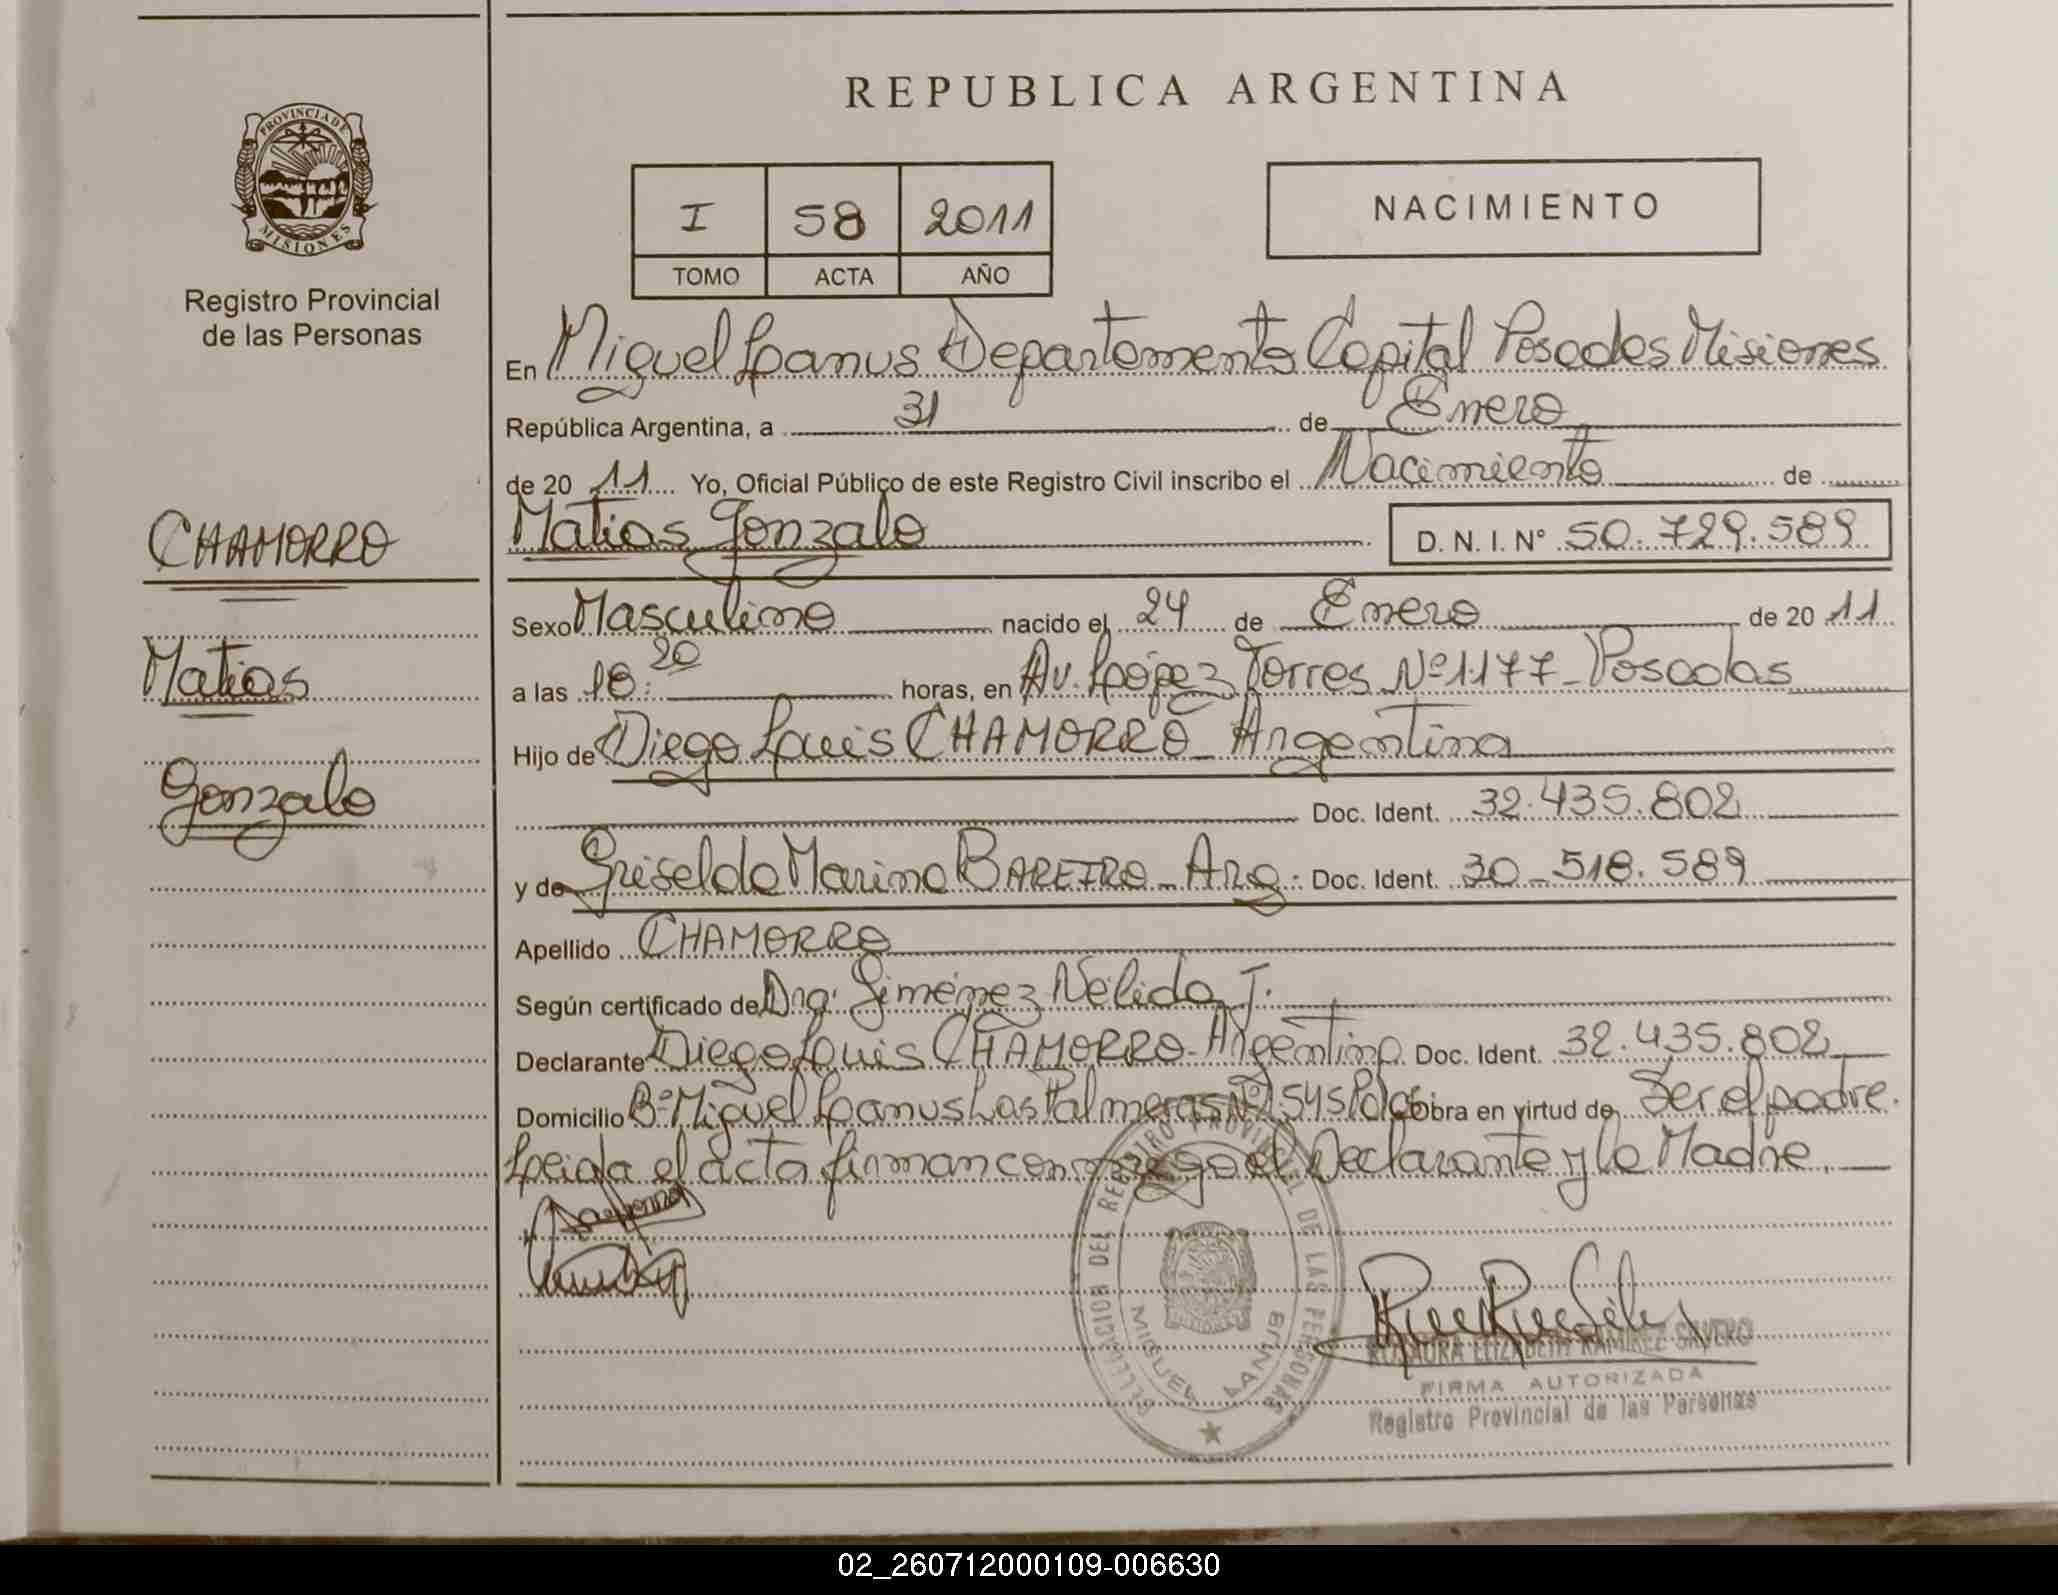 PROVINCIA DE
MISIONES
Registro Provincial
de las Personas
CHAMORRO
Matias
Gonzalo
REPUBLICA ARGENTINA
I 58 2011
TOMO ACTA AÑO
NACIMIENTO
En Miguel Lanus Departamento Capital Posadas Misiones
República Argentina, a 31 de Enero
de 20 11 Yo, Oficial Público de este Registro Civil inscribo el Nacimiento de
Matias Gonzalo D. N. I. N° 50.729.589
Sexo Masculino nacido el 24 de Enero de 20 11
a las 10:20 horas, en Av. López Torres Nº 1177 - Posadas
Hijo de Diego Luis CHAMORRO - Argentina
Doc. Ident. 32.435.802
y de Griselda Marina BAREIRO - Arg. Doc. Ident. 30-518.589
Apellido CHAMORRO
Según certificado de Dra. Giménez Nélida T.
Declarante Diego Luis CHAMORRO - Argentino Doc. Ident. 32.435.802
Domicilio Bº Miguel Lanus Las Palmeras Nº 2545 Pdas Obra en virtud de Ser el padre.
Leida el acta firman conmigo el Declarante y la Madre.
DELEGACION DEL REGISTRO PROVINCIAL DE LAS PERSONAS
MIGUEL LANUS
ROSAURA ELIZABETH RAMIREZ SILVERO
FIRMA AUTORIZADA
Registro Provincial de las Personas
02_260712000109-006630